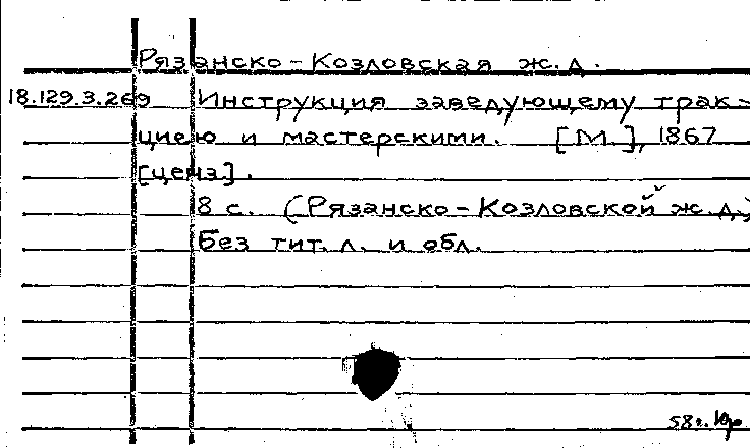 Рязанско-Козловская ж.д.
18.129.3.269 Инструкция заведующему трак-
циею и мастерскими. [М.], 1867
[ценз].
8 с. (Рязанско-Козловской ж.д.)
Без тит. л. и обл.
58г.